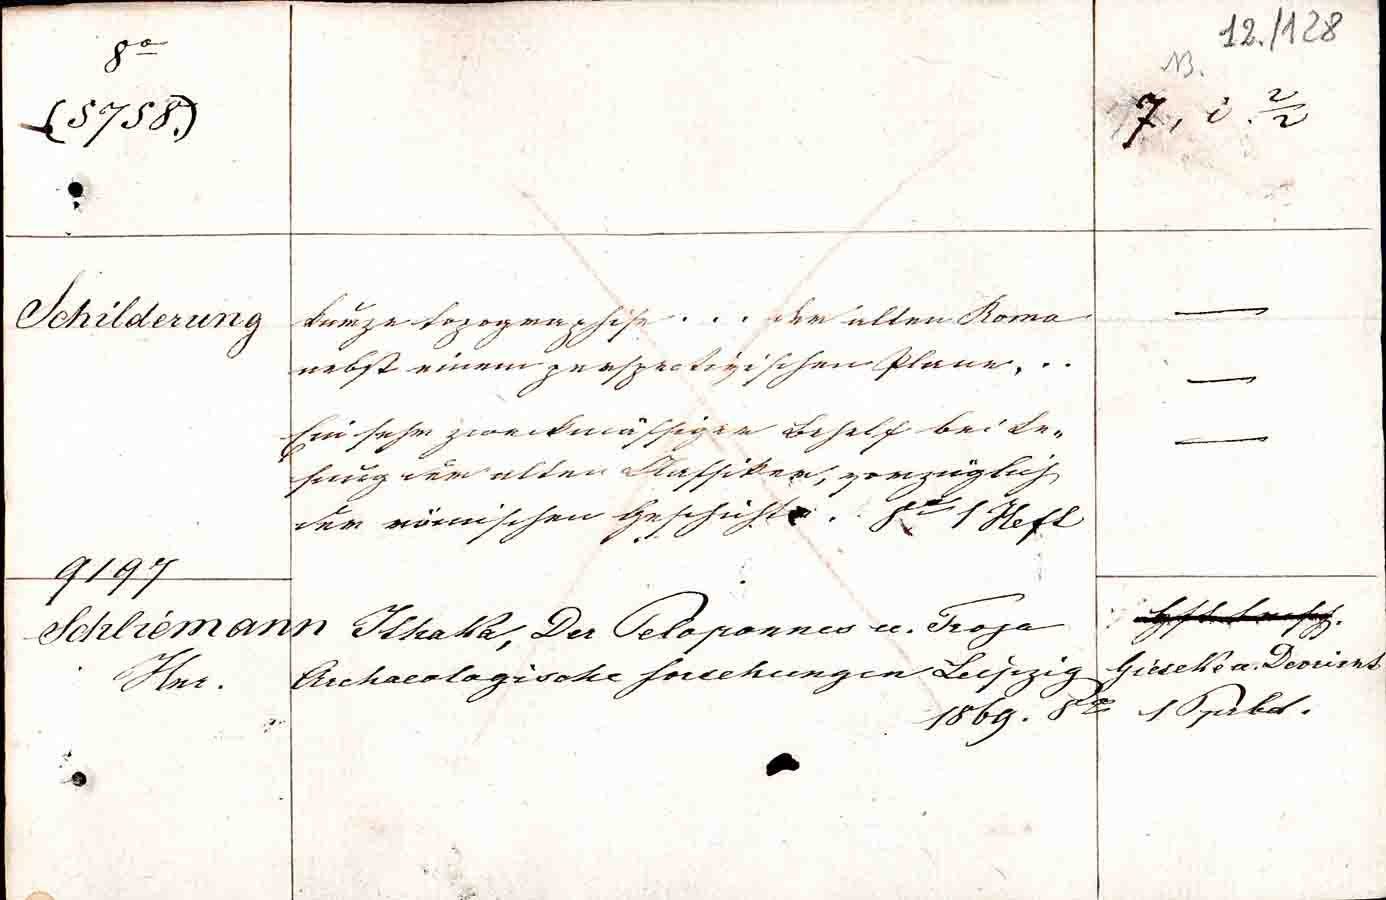 8º
12./128
NB.
(5758.)
7, i. 2/2
Schilderung kurze topographische ... der alten Roma —
nebst einem perspectivischen Plane, .. —
Ein sehr zweckmässiger Behelf bei Le„ —
sung der alten Klassiker, vorzüglich
der römischen Geschichte. 8º 1 Heft
9197
Schliemann Ithaka, Der Peloponnes u. Troja
Hnr. Archaeologische forschungen Leipzig Giesecke u. Devrient
1869. 8º 1 Ppbd.